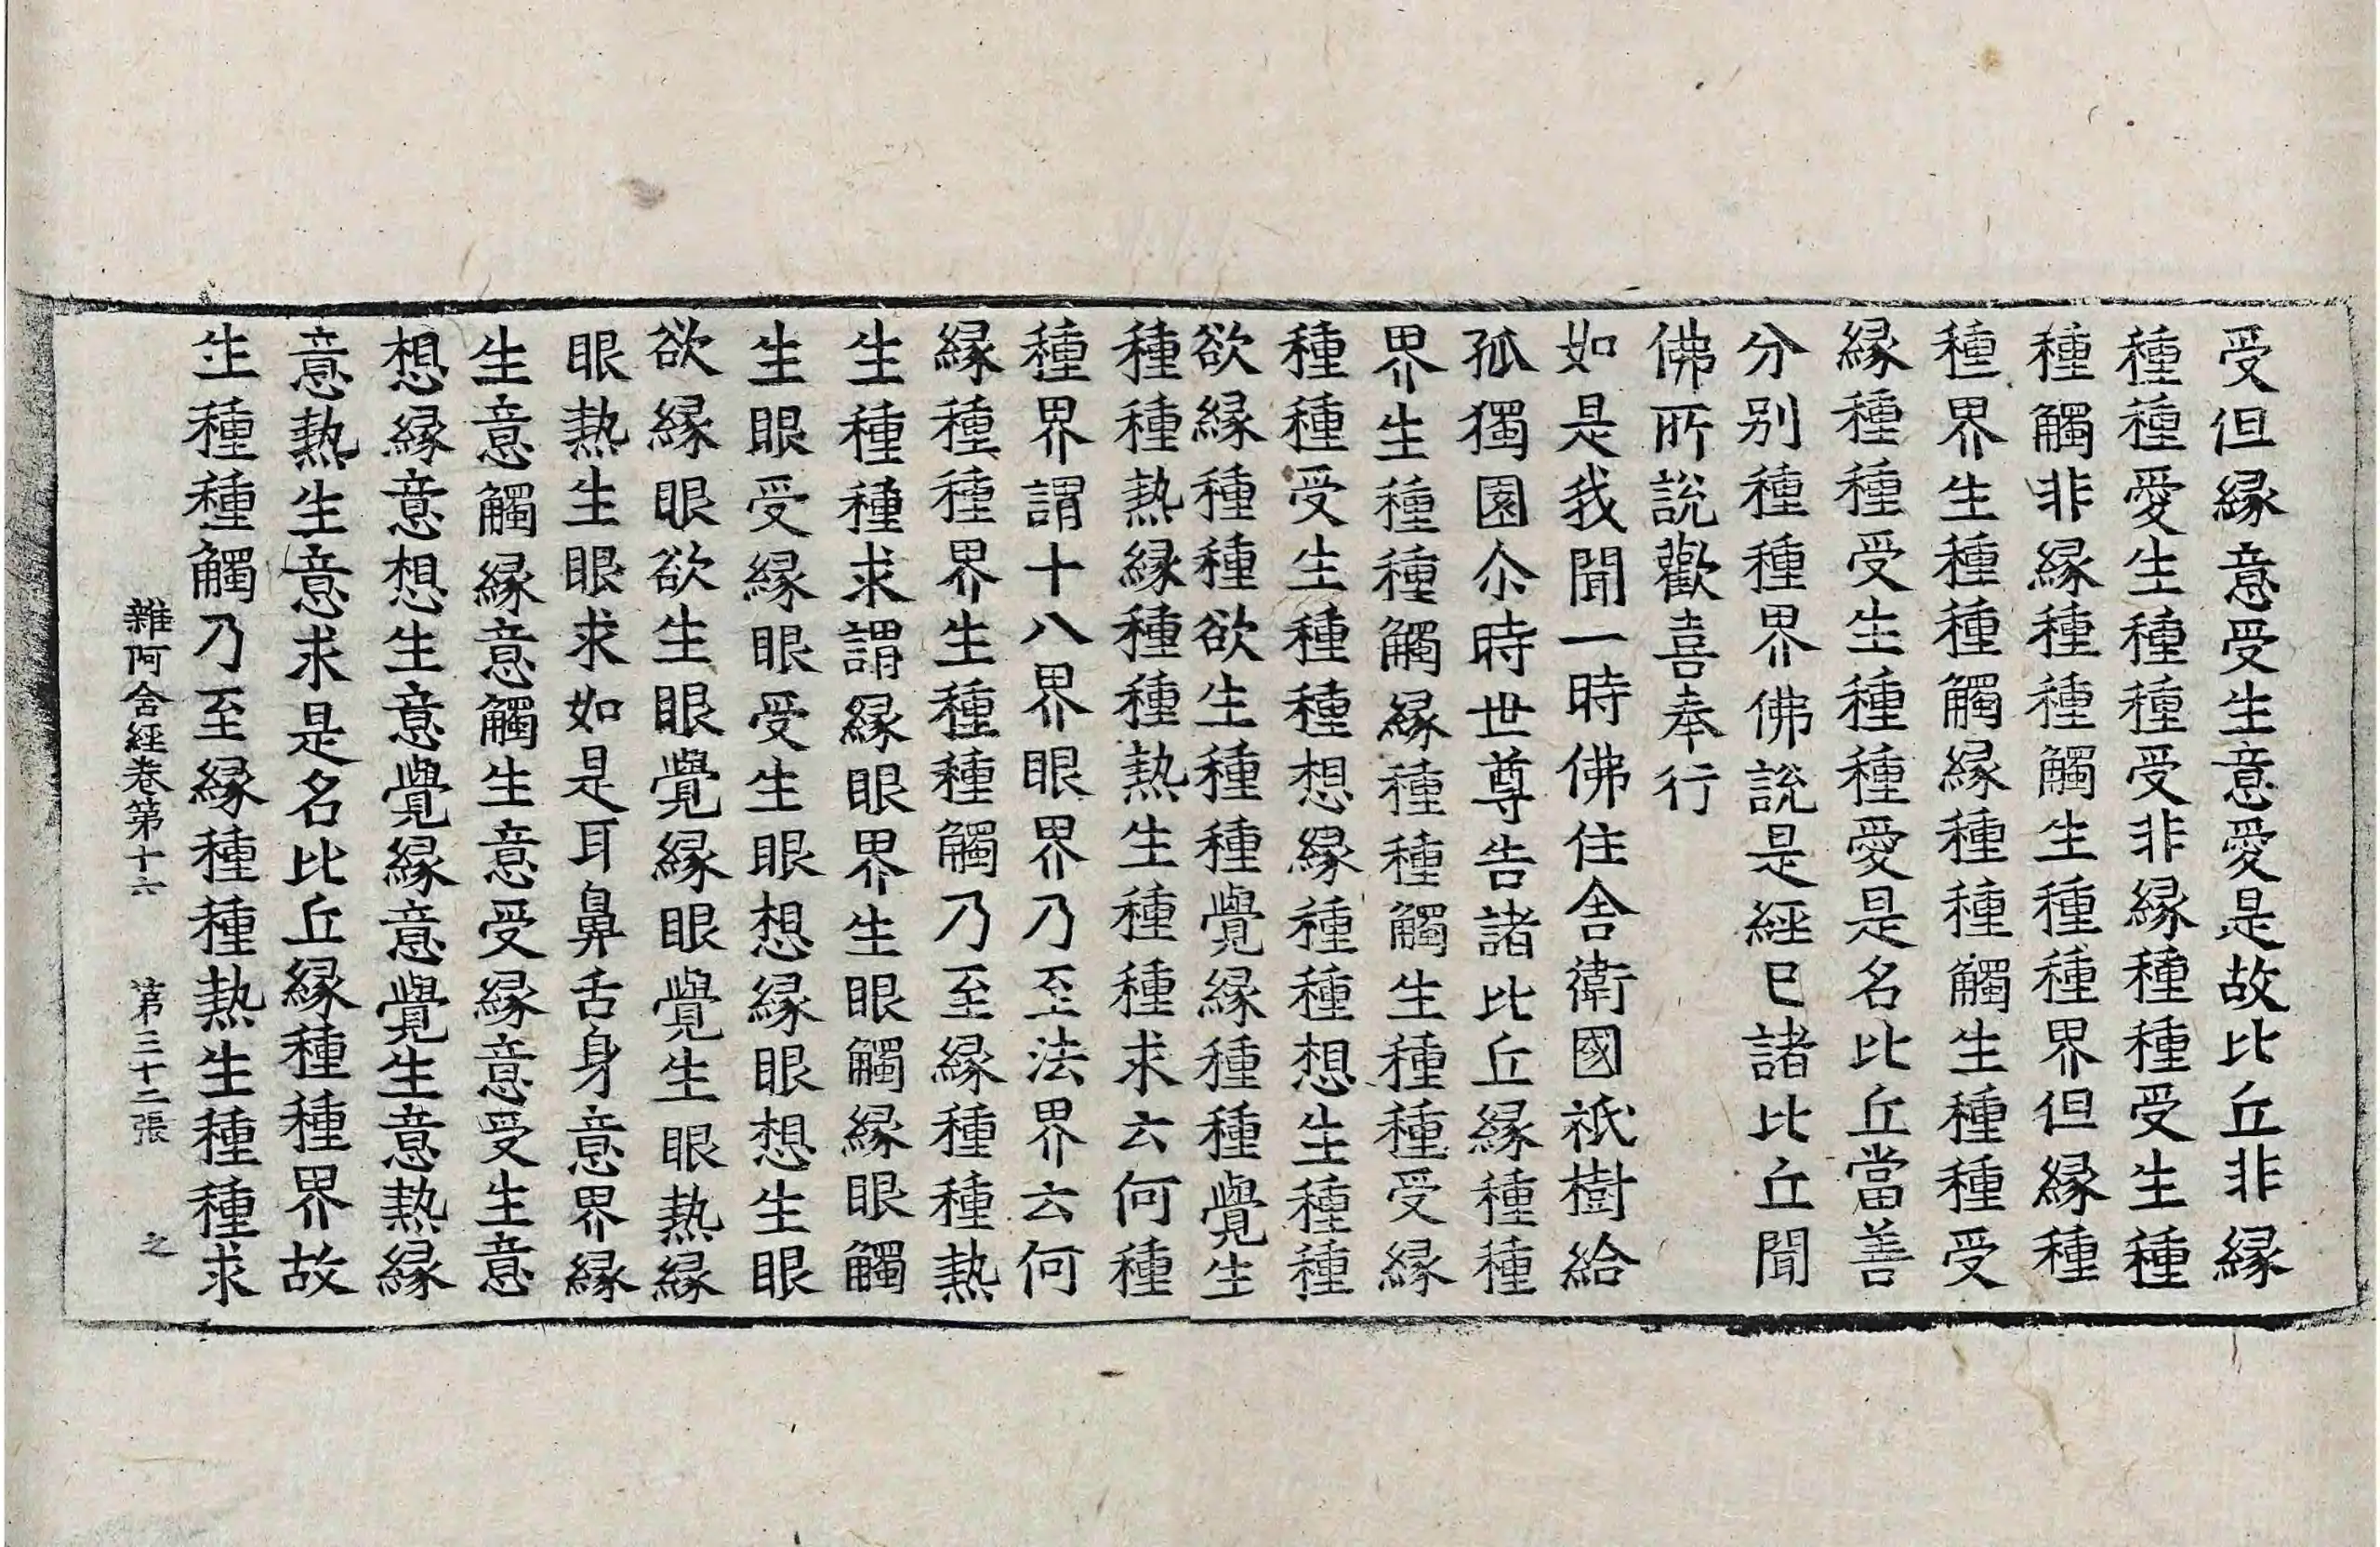 受但縁意受生意愛是故比丘非縁
種種愛生種種受非縁種種受生種
種觸非縁種種觸生種種界但縁種
種界生種種觸縁種種觸生種種受
縁種種受生種種愛是名比丘當善
分別種種界佛說是經已諸比丘聞
佛所說歡喜奉行
如是我聞一時佛住舍衛國祇樹給
孤獨園尒時世尊告諸比丘縁種種
界生種種觸縁種種觸生種種受縁
種種受生種種想縁種種想生種種
欲縁種種欲生種種覺縁種種覺生
種種熱縁種種熱生種種求云何種
種界謂十八界眼界乃至法界云何
縁種種界生種種觸乃至縁種種熱
生種種求謂縁眼界生眼觸縁眼觸
生眼受縁眼受生眼想縁眼想生眼
欲縁眼欲生眼覺縁眼覺生眼熱縁
眼熱生眼求如是耳鼻舌身意界縁
生意觸縁意觸生意受縁意受生意
想縁意想生意覺縁意覺生意熱縁
意熱生意求是名比丘縁種種界故
生種種觸乃至縁種種熱生種種求
雜阿含經卷第十六 第三十二張 之